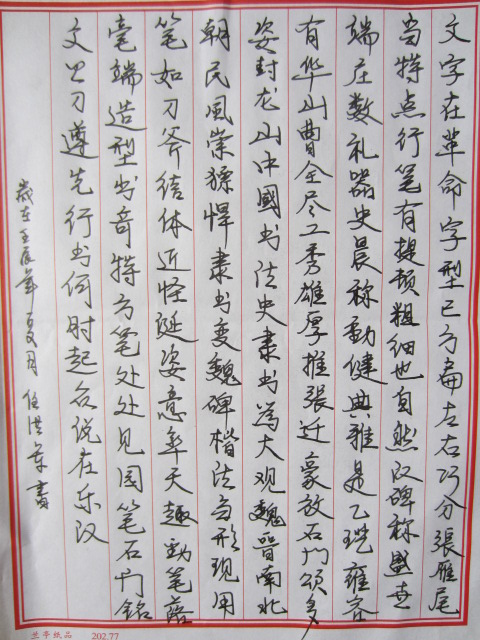 文字在革命字型已方扁左右巧分張雁尾
当特点行笔有提顿粗细也自然汉碑称盛世
端庄数礼器史晨称勁健典雅是乙瑛雍容
有华山曹全尽工秀雄厚推張迁豪放石门颂多
姿封龙山中國书法史隶书為大观魏晋南北
朝民風崇猂悍隶书变魏碑楷法多形现用
笔如刀斧结体近怪诞姿意率天趣動笔落
毫端造型书奇特方笔处处见园笔石门铭
文公刀遵先行书何时起众说在东汉
歲在壬辰年夏月 任洪 書
兰亭纸品 202.77